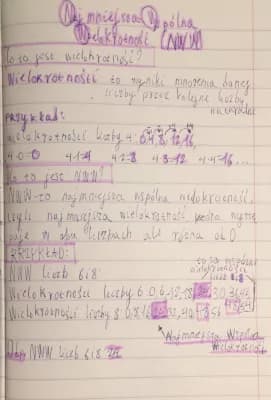 Najmniejsza Wspólna
Wielokrotność (NWW)
Co to jest wielokrotność?
Wielokrotności to wyniki mnożenia danej
liczby przez kolejne liczby
naturalne
PRZYKŁAD:
wielokrotności liczby 4: 0,4,8,12,16,
4·0=0 4·1=4 4·2=8 4·3=12 4·4=16...
Co to jest NWW?
NWW-to najmniejsza wspólna wielokrotność,
czyli najmniejsza wielokrotność która
w obu liczbach ale różna od 0
PRZYKŁAD:
NWW liczb 6 i 8
to są wspólne
wielokrotności
liczb 6 i 8
Wielokrotności liczby 6: 0,6,12,18,24,30,36,42,
48,54
Wielokrotności liczby 8: 0,8,16,24,32,40,48,56
Najmniejsza Wspólna
Wielokrotność
Odp. NWW liczb 6 i 8 24